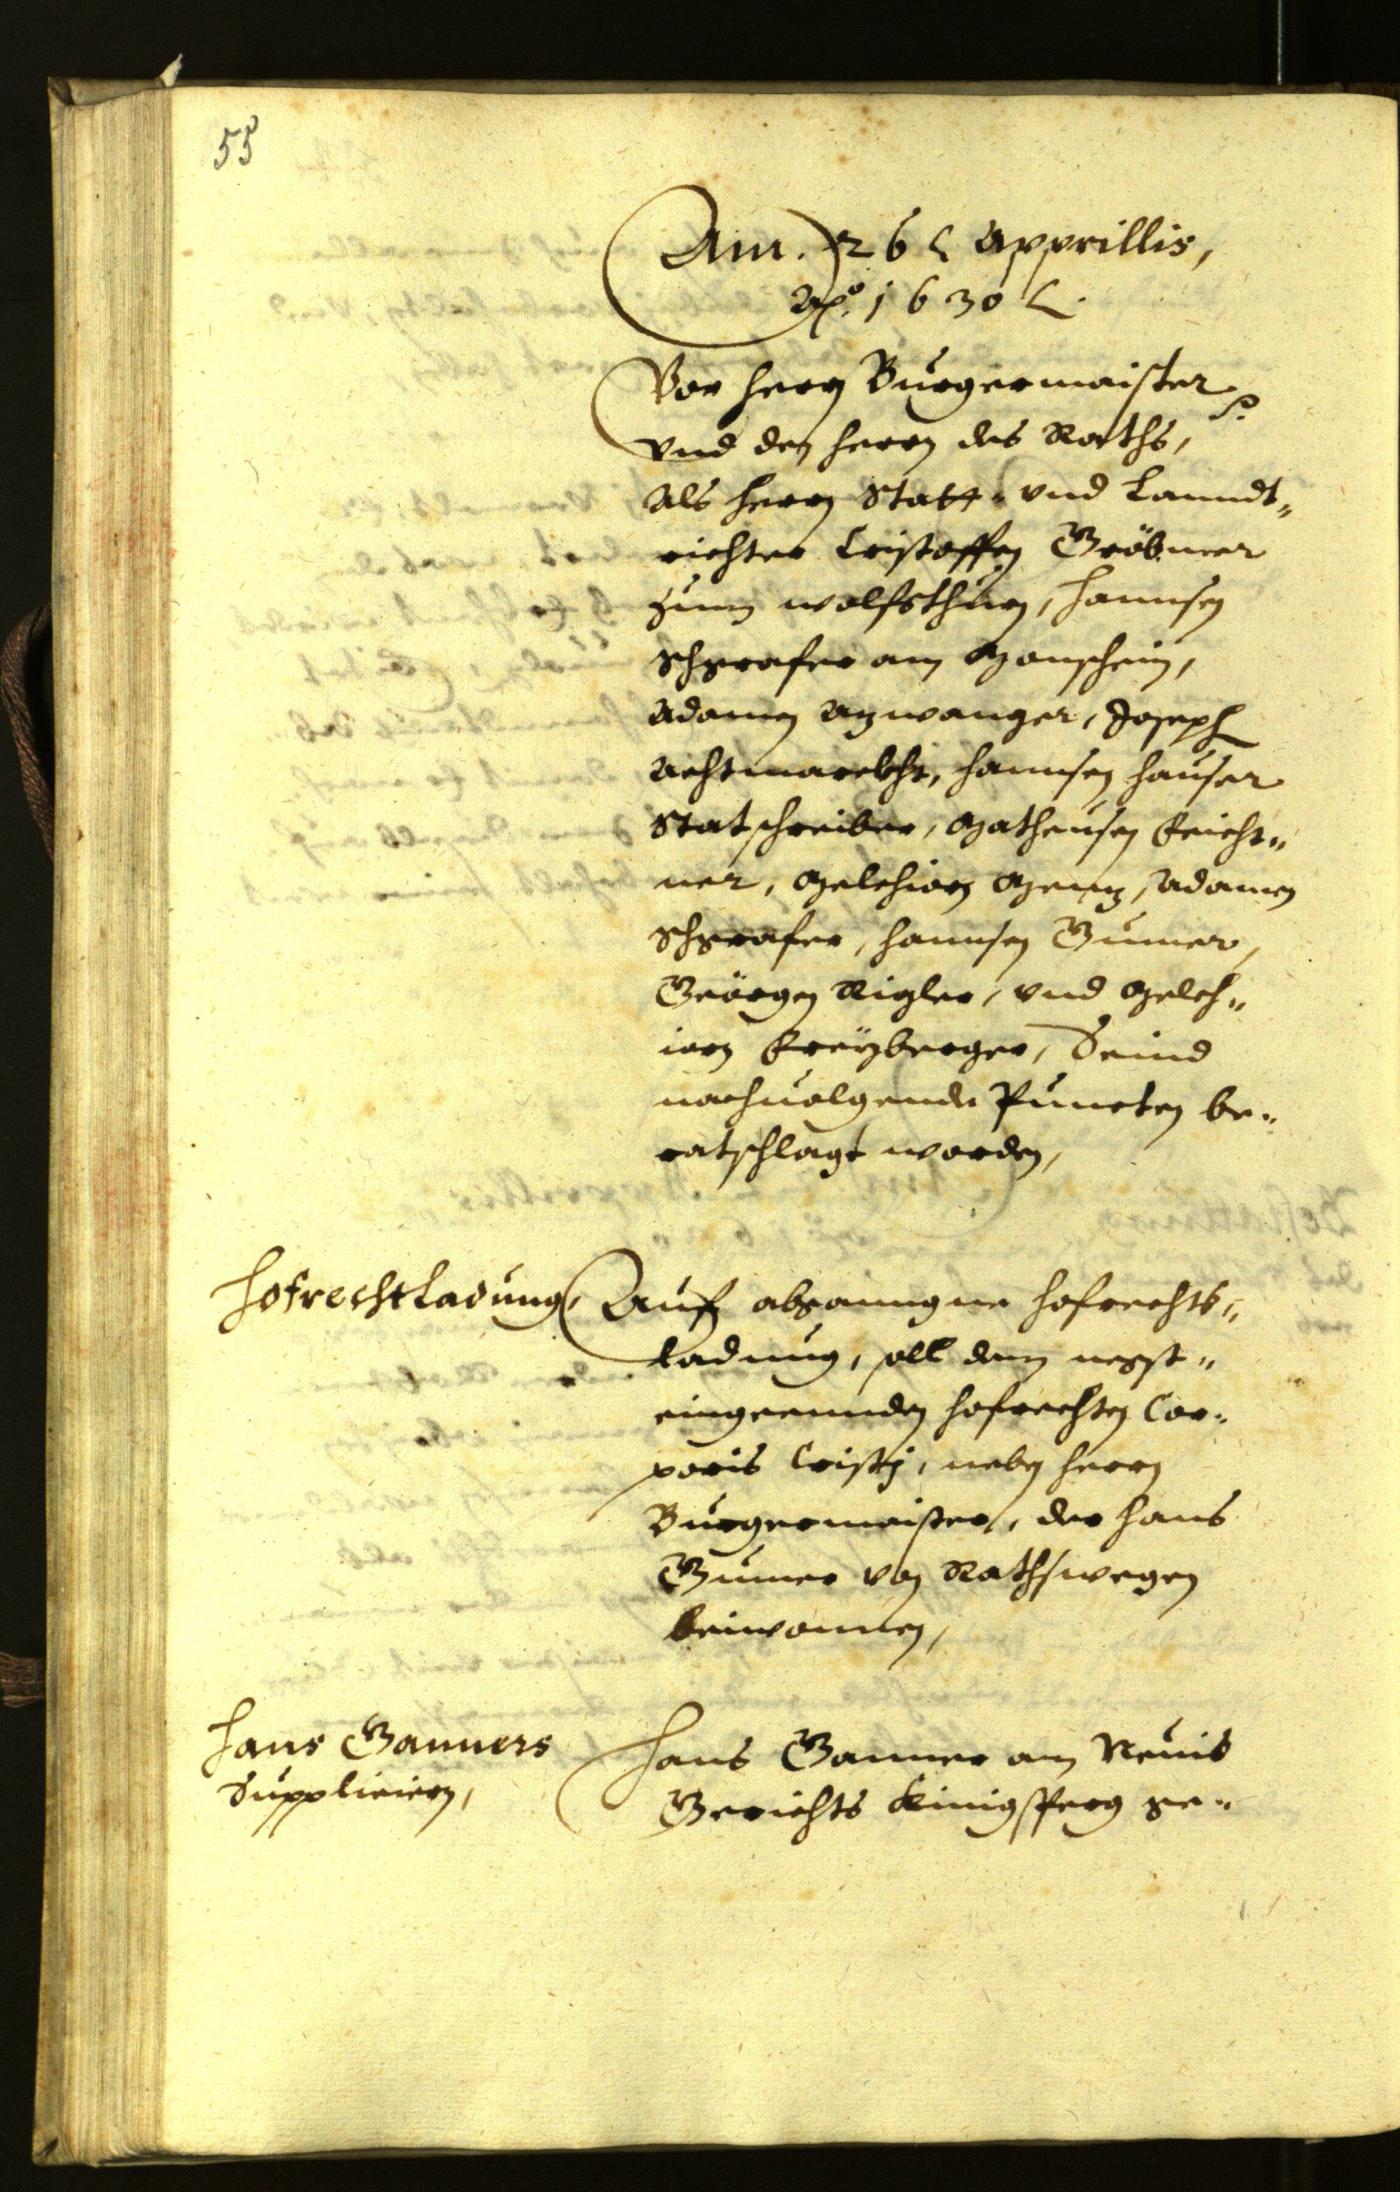 55
Am. 26 Apprillis,
Aõ. 1630.
Vor herrn Burgermaister
vnd den herrn des Raths,
als herrn Statt- vnd Lanndt-
richter Cristoffen Gröbmer
zum wolfsthurn, Hannsen
Schgrafer am Monschein,
Adamen Azwanger, Joseph
Achtmarckht, Hannsen Hauser
Statschreiber, Matheusen Feicht-
ner, Melchiorn Menz, Adamen
Schgrafer, Hannsen Gumer,
Geörgen Rigler, vnd Melch-
iorn Freyberger, Seind
nachuolgende Puncten be-
ratschlagt worden,
Hofrechtladung,
Auf abganngne Hofrechts-
ladung, soll dem negst-
eingeenden Hofrechten Cor-
poris Cristj, neben herrn
Burgermaister, der Hans
Gumer von Rathswegen
beiwonnen,
Hans Ganners
Suppliciern,
Hans Ganner am Neuis
Gerichts Kinigsperg ge-